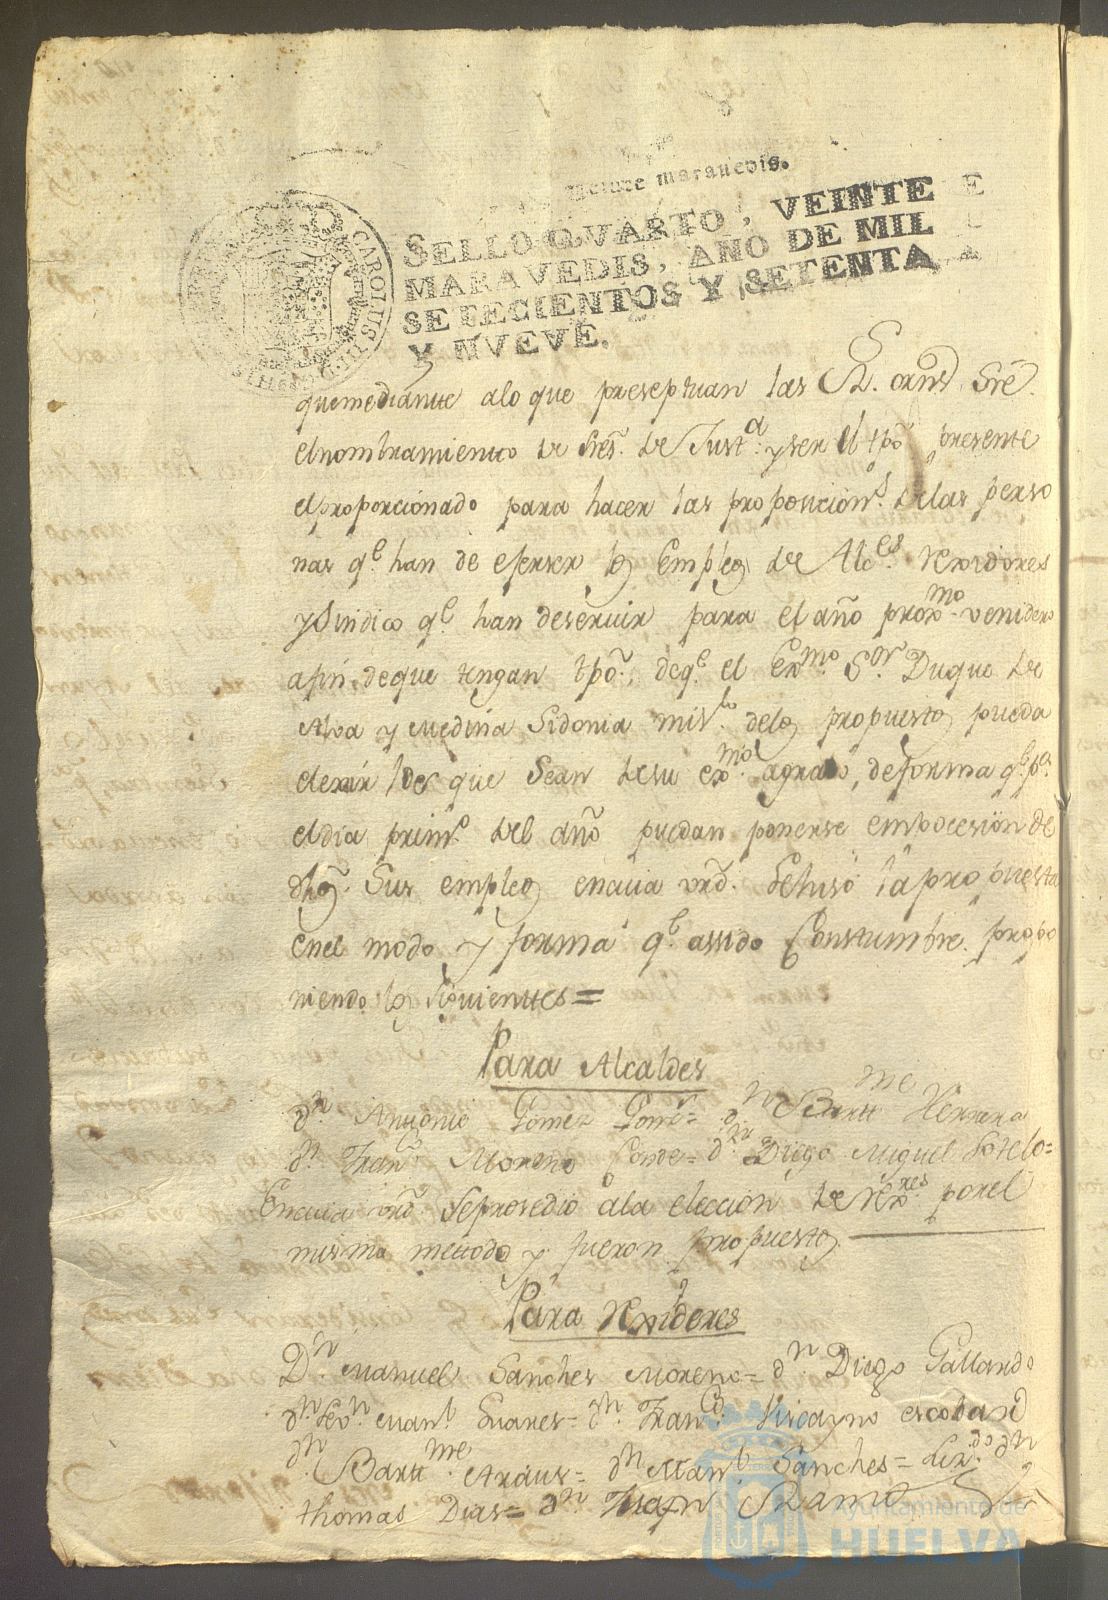 veinte maravedis.
SELLO QVARTO, VEINTE
MARAVEDIS, AÑO DE MIL
SETECIENTOS Y SETENTA
Y NVEVE.
CAROLUS III
quemediante alo que preseptuan las Rs. ornd. Sre.
elnombramiento de Sres. de Justa. yser el tpo presente
elproporcionado para hacer las proposicions. delas perso
nas qe. han de eserser los Empleos de Alces. Rexidores
ySindico qe. han deservir para el año proxmo. venidero
afin deque tengan tpo. deqe. el Exmo. Sor. Duque de
Alva y Medina Sidonia delos propuestos pueda
elexir los que Sean desu exmo. agrado, deforma qe. pa.
eldia primo. del año puedan ponerse emposesion de
dhos. Sus empleos encuia vrd. Sehiso la propuesta
enel modo y forma qe. assido Constumbre propo
niendo los siguientes=
Para Alcaldes
dn. Anttonio Gomez = dn Bartme Herrera
dn. Franco. Moreno Conde= dn. Diego Miguel Sotelo=
Encuia vrd. Seprosedio ala eleccion de Rexres porel
mismo mettodo y fueron propuestos
Para Rexidores
Dn Manuel Sanches Moreno= dn Diego Gallardo
dn. manl. Suares= dn. Franco. Viscayno escobar
dn. Bartme. Araus= dn Manl. Sanches= Lizdo. dn
thomas Dias= dn Juan
Ayuntamiento de
HUELVA